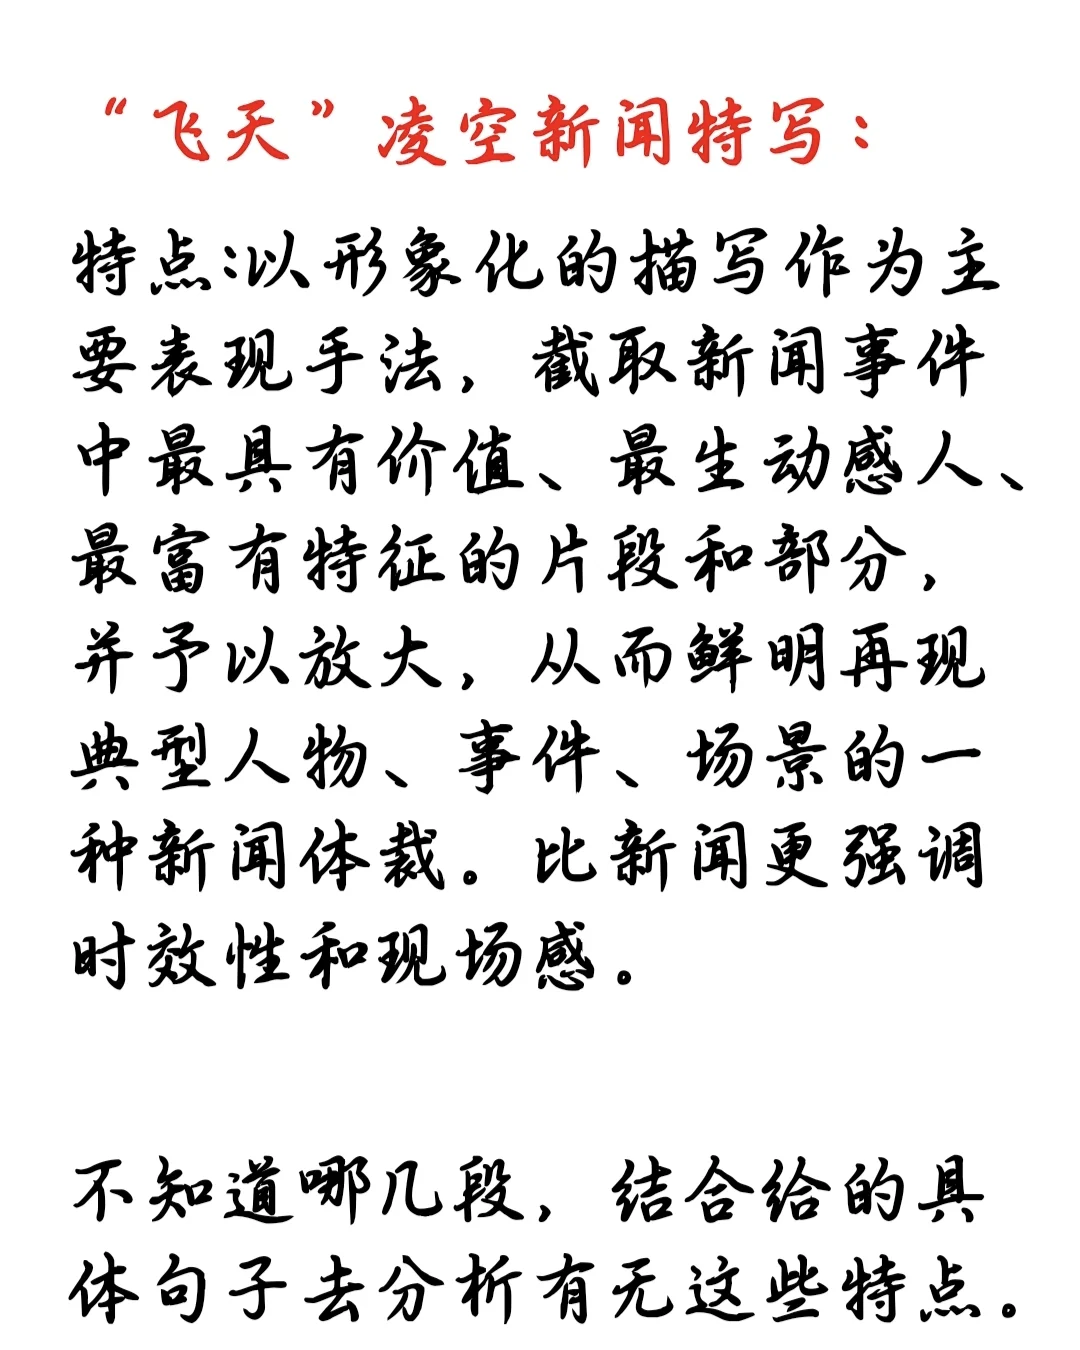 “飞天”凌空新闻特写：
特点:以形象化的描写作为主
要表现手法，截取新闻事件
中最具有价值、最生动感人、
最富有特征的片段和部分，
并予以放大，从而鲜明再现
典型人物、事件、场景的一
种新闻体裁。比新闻更强调
时效性和现场感。
不知道哪几段，结合给的具
体句子去分析有无这些特点。